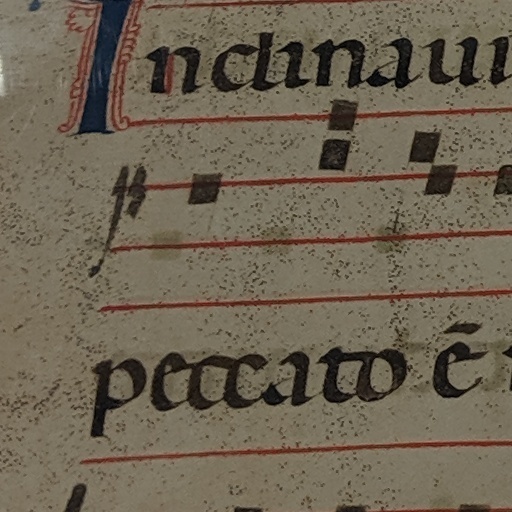 Inclinaui
peccato ē